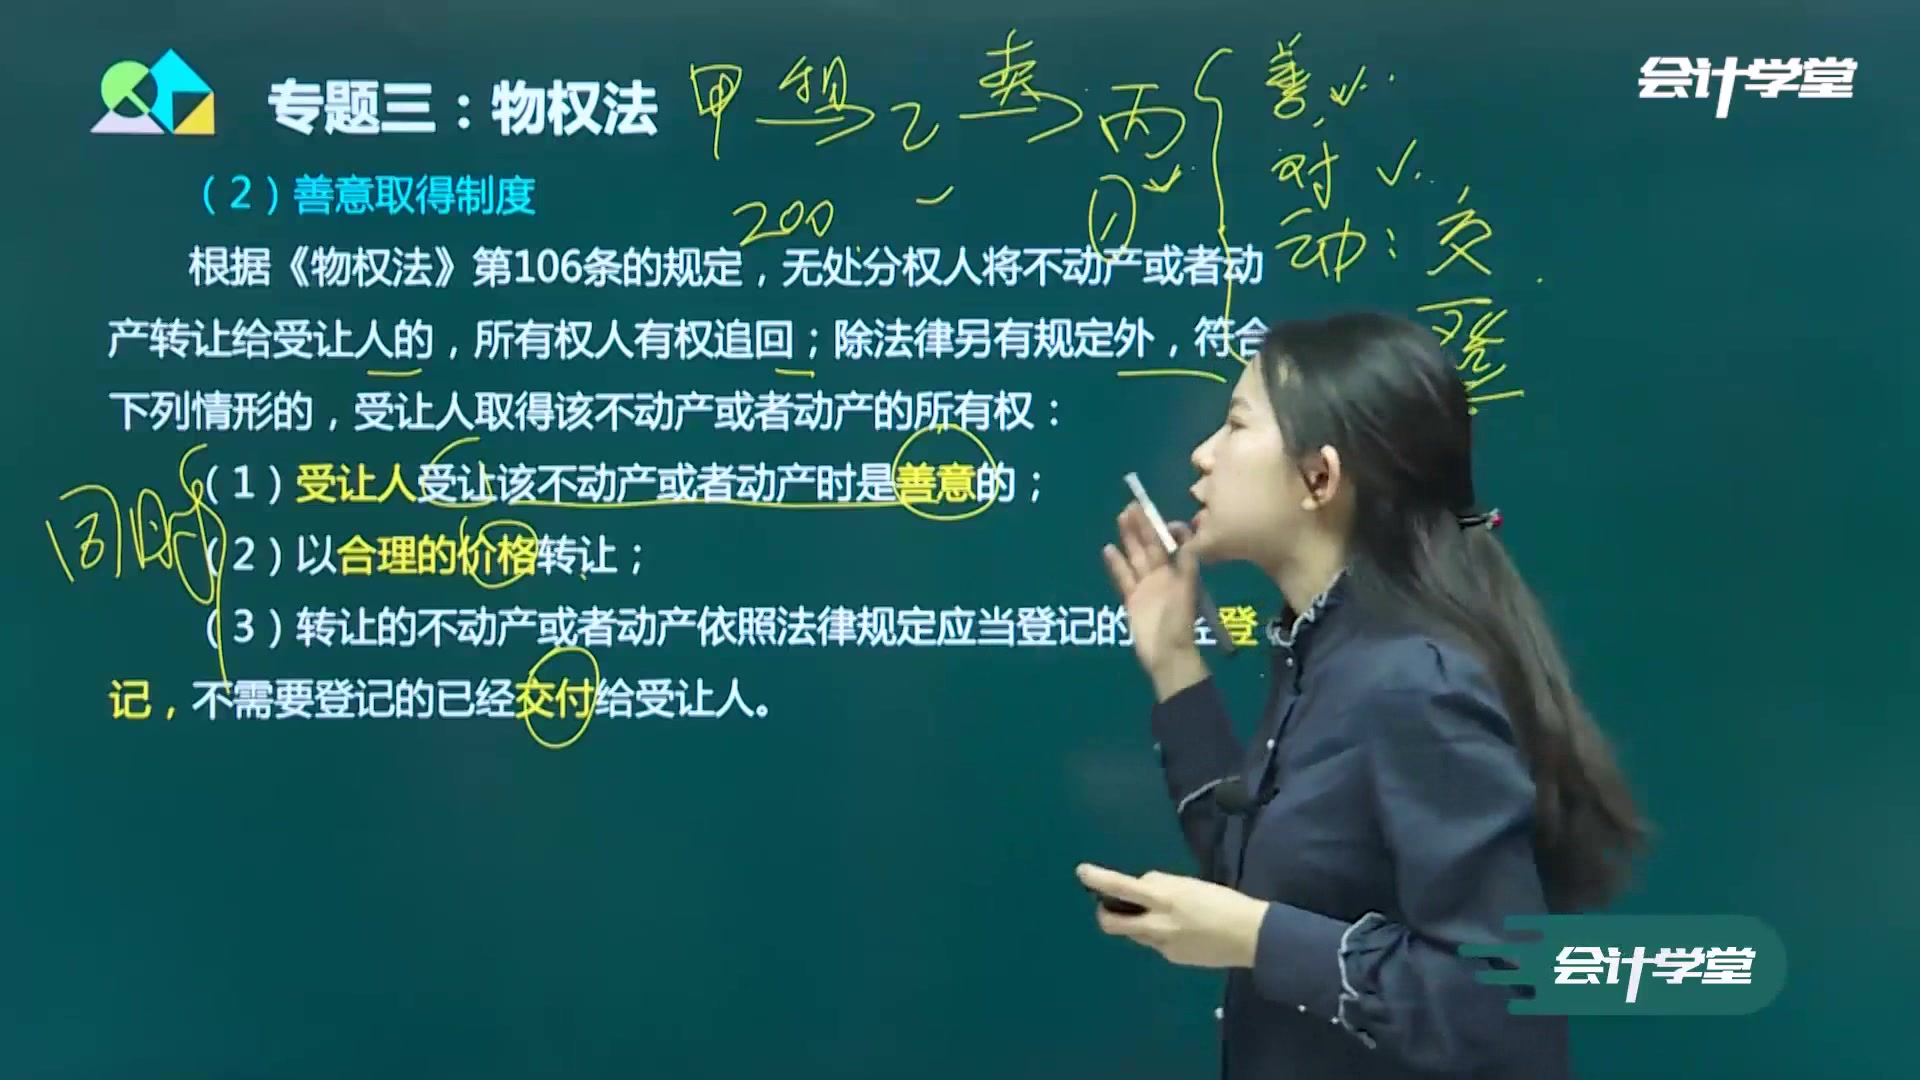 专题三：物权法
甲 租 乙 卖 丙
善
会计学堂
对
（2）善意取得制度
200
①
动：交
登
根据《物权法》第106条的规定，无处分权人将不动产或者动
产转让给受让人的，所有权人有权追回；除法律另有规定外，符合
下列情形的，受让人取得该不动产或者动产的所有权：
同时
（1）受让人受让该不动产或者动产时是善意的；
（2）以合理的价格转让；
（3）转让的不动产或者动产依照法律规定应当登记的 登
记，不需要登记的已经交付给受让人。
会计学堂